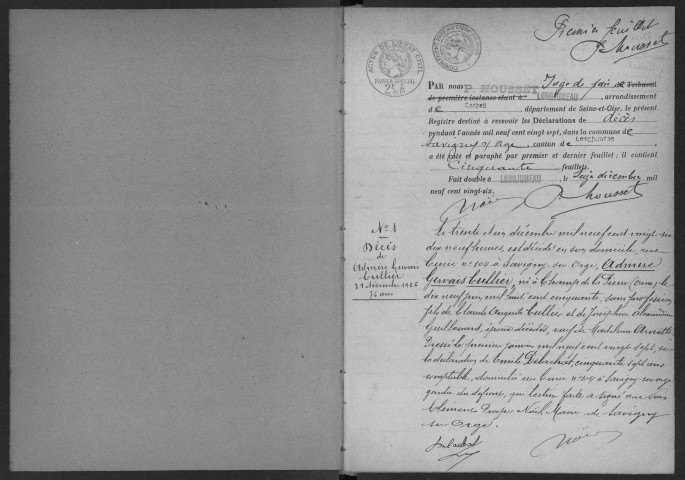 Premier feuillet
P. Mousset
ACTES DE L'ÉTAT CIVIL
PAPIER SPÉCIAL
PAR nous P. MOUSSET Juge de paix de Tribunal
de première instance séant à LONGJUMEAU, arrondissement
de Corbeil, département de Seine-et-Oise, le présent
Registre destiné à recevoir les Déclarations de décès
pendant l'année mil neuf cent vingt-sept, dans la commune de
Savigny s/ Orge canton de Longjumeau
a été coté et paraphé par premier et dernier feuillet; il contient
Cinquante feuillets.
Fait double à LONGJUMEAU, le seize décembre mil
neuf cent vingt-six.
P. Mousset
N° 1
Décès
de
Admire Gervais
Cullier
31 décembre 1926
76 ans
Le trente et un décembre mil neuf cent vingt-six
dix neuf heures, est décédé en son domicile, rue
n° 104 à Savigny-sur-Orge, Admire
Gervais Cullier, né à Champ de la Pierre (Orne), le
dix neuf juin mil huit cent cinquante, sans profession,
fils de Claude Auguste Cullier et de Joséphine
Guillemard, époux décédés, veuf de
Dressé le premier janvier mil neuf cent vingt sept, sur
la déclaration de Emile Delachat, cinquante sept ans
comptable, domicilié rue n° 104 à Savigny-sur-Orge
gendre du défunt, qui lecture faite a signé avec Nous
Maire de Savigny
sur Orge.
Delachat